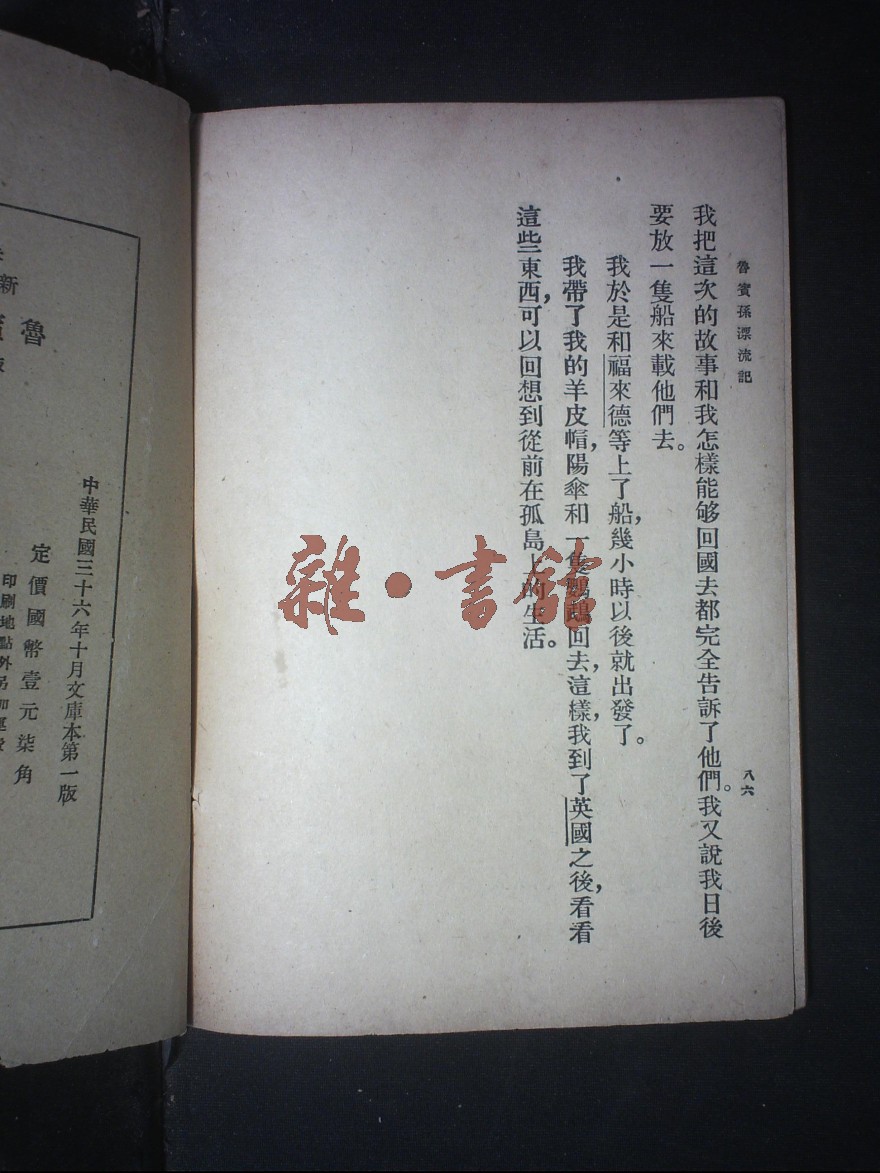 魯賓孫漂流記
八六
我把這次的故事和我怎樣能够回國去都完全告訴了他們。我又說我日後
要放一隻船來載他們去。
我於是和福來德等上了船，幾小時以後就出發了。
我帶了我的羊皮帽，陽傘和一隻鸚鵡回去，這樣，我到了英國之後，看看
這些東西，可以回想到從前在孤島上的生活。
雜·書館
中華民國三十六年十月文庫本第一版
定價國幣壹元柒角
印刷地點外另加運費
魯
新